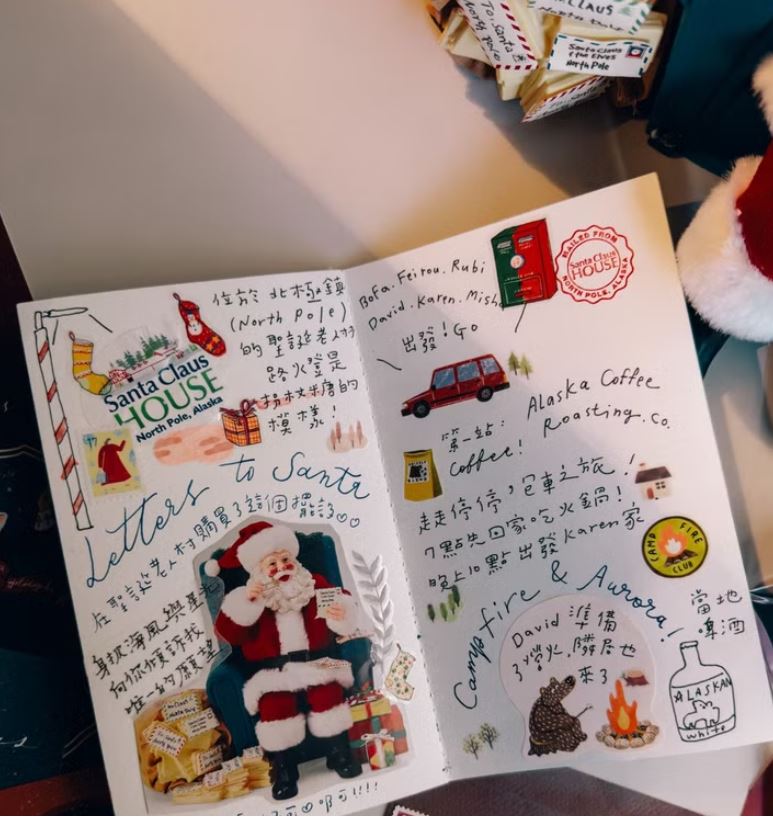 To, Santa
North pole
CLAUS
North Pole
Santa Claus
& the Elves
North Pole
Santa Claus
HOUSE
North Pole, Alaska
位於北極鎮
(North Pole)
的聖誕老人村
路燈是
拐杖糖的
模樣!
Letters to Santa
在聖誕老人村購買了這個擺設♡♡
身披海風與星光
向你傾訴我
唯一的願望
Bofa. Feirou. Rubi
David. Karen. Misha
出發! Go
MAILED FROM
Santa Claus
HOUSE
NORTH POLE, ALASKA
Alaska Coffee
Roasting. Co.
第一站:
Coffee!
走走停停,包車之旅!
7點先回家吃火鍋!
晚上10點出發 Karen家
CAMP FIRE
CLUB
Camp fire & Aurora!
David 準備
了營火,隣居也
來了
當地
啤酒
ALASKAN
white